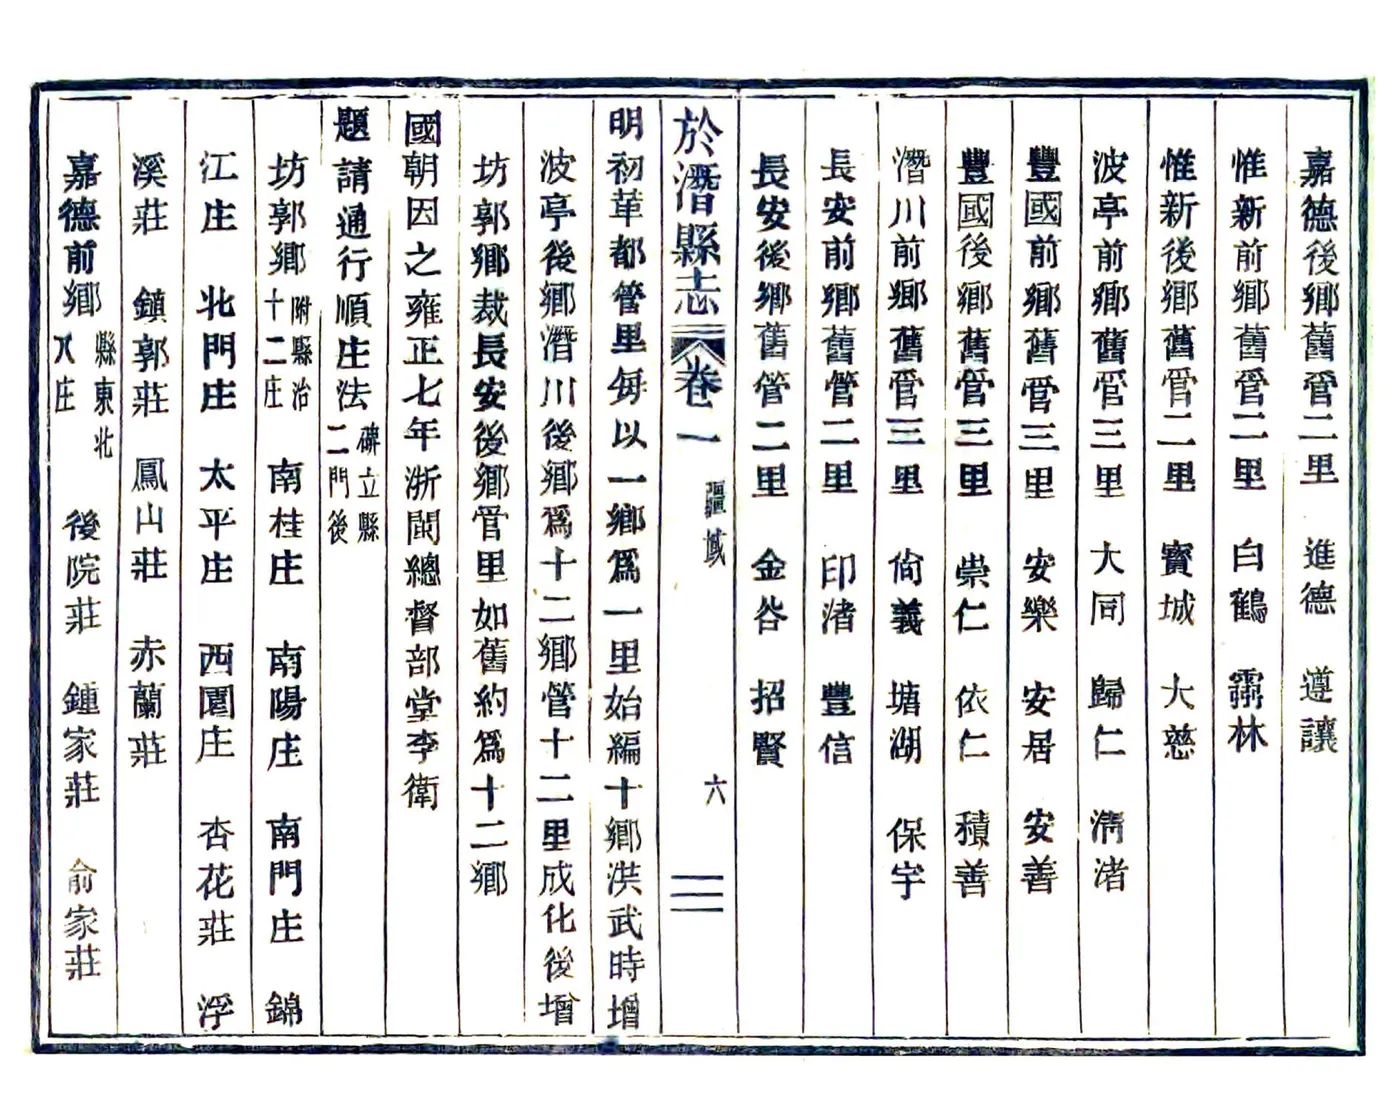 嘉德後鄉舊管二里　進德　遵讓
惟新前鄉舊管二里　白鶴　霱林
惟新後鄉舊管二里　寳城　大慈
波亭前鄉舊管三里　大同　歸仁　清渚
豐國前鄉舊管三里　安樂　安居　安善
豐國後鄉舊管三里　崇仁　依仁　積善
潛川前鄉舊管三里　尙義　塘湖　保宇
長安前鄉舊管二里　印渚　豐信
長安後鄉舊管二里　金谷　招賢
於潛縣志　卷一　疆域　六
明初革都管里每以一鄉爲一里始編十鄉洪武時增
波亭後鄉潛川後鄉爲十二鄉管十二里成化後增
坊郭鄉裁長安後鄉管里如舊約爲十二鄉
國朝因之雍正七年浙閩總督部堂李衛
題請通行順庄法碑立縣二門後
坊郭鄉附縣治十二庄　南桂庄　南陽庄　南門庄　錦
江庄　北門庄　太平庄　西園庄　杏花莊　浮
溪莊　鎮郭莊　鳳山莊　赤蘭莊
嘉德前鄉縣東北八庄　後院莊　鍾家莊　俞家莊